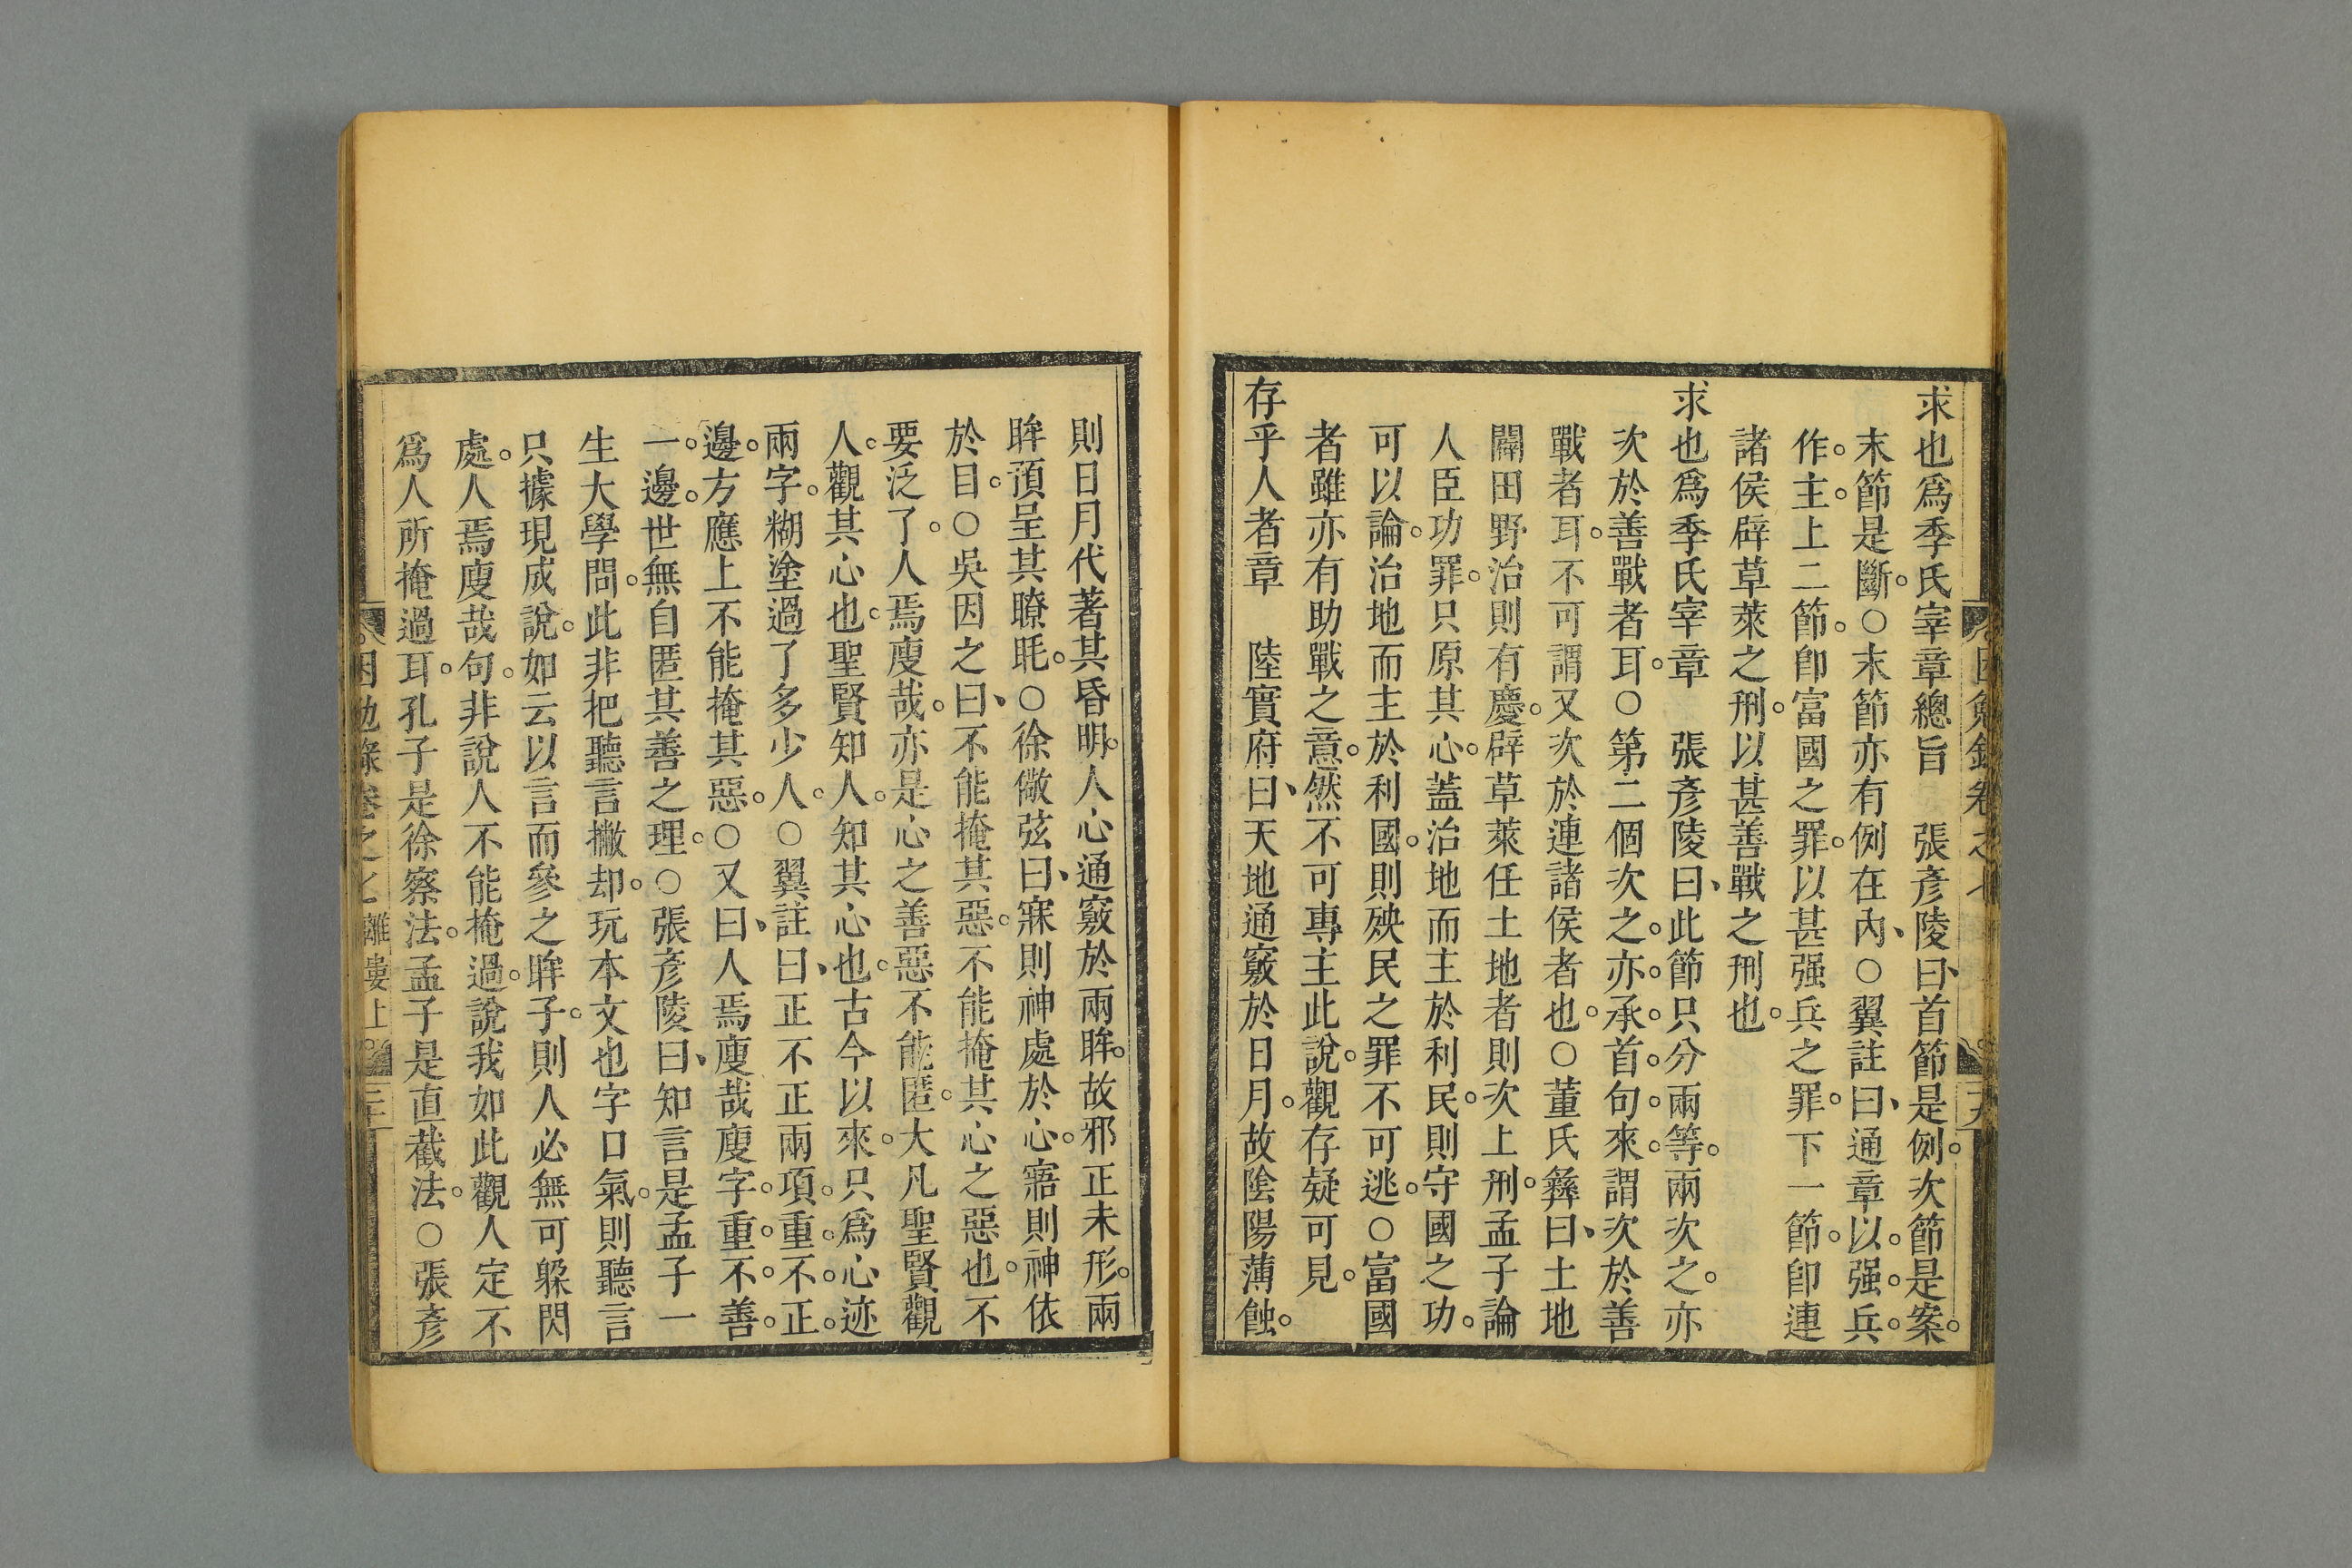 求也爲季氏宰章總旨　張彥陵曰、首節是例。次節是案。
末節是斷。○末節亦有例在內、○翼註曰、通章以。强。兵。
作。主。上二節。卽富國之罪。以甚强兵之罪。下一節。卽連
諸侯辟草萊之刑。以甚善戰之刑也。
求也爲季氏宰章　張彥陵曰、此節只分兩等。兩次之。亦
次於善戰者耳。○第二個次之。亦。承。首。句。來。謂次於善
戰者耳。不可謂又次於連諸侯者也。○董氏彝曰、土地
闢田野治則有慶。辟草萊任土地者則次上刑。孟子論
人臣功罪。只原其心。蓋治地而主於利民。則守國之功。
可以論。治地而主於利國。則殃民之罪不可逃。○富國
者雖亦有助戰之意。然不可專主此說。觀存疑可見。
存乎人者章　陸實府曰、天地通竅於日月。故陰陽薄蝕。
則日月代著其昏明。人心通竅於兩眸。故邪正未形。兩
眸預呈其瞭眊。○徐儆弦曰、寐則神處於心。寤則神依
於目。○吳因之曰、不能掩其惡。不能掩其心之惡也。不
要泛了。人焉廋哉。亦是心之善惡不能匿。大凡聖賢觀
人。觀其心也。聖賢知人。知其心也。古今以來。只爲心迹
兩字。糊塗過了多少人。○翼註曰、正不正兩項。重。不。正。
邊。方應上不能掩其惡。○又曰、人焉廋哉廋字。重。不。善。
一。邊。世無自匿其善之理。○張彥陵曰、知言是孟子一
生大學問。此非把聽言撇却。玩本文也字口氣。則聽言
只據現成說。如云以言而參之眸子。則人必無可躱閃
處。人焉廋哉句。非說人不能掩過。說我如此觀人定不
爲人所掩過耳。孔子是徐察法。孟子是直截法。○張彥
離婁上